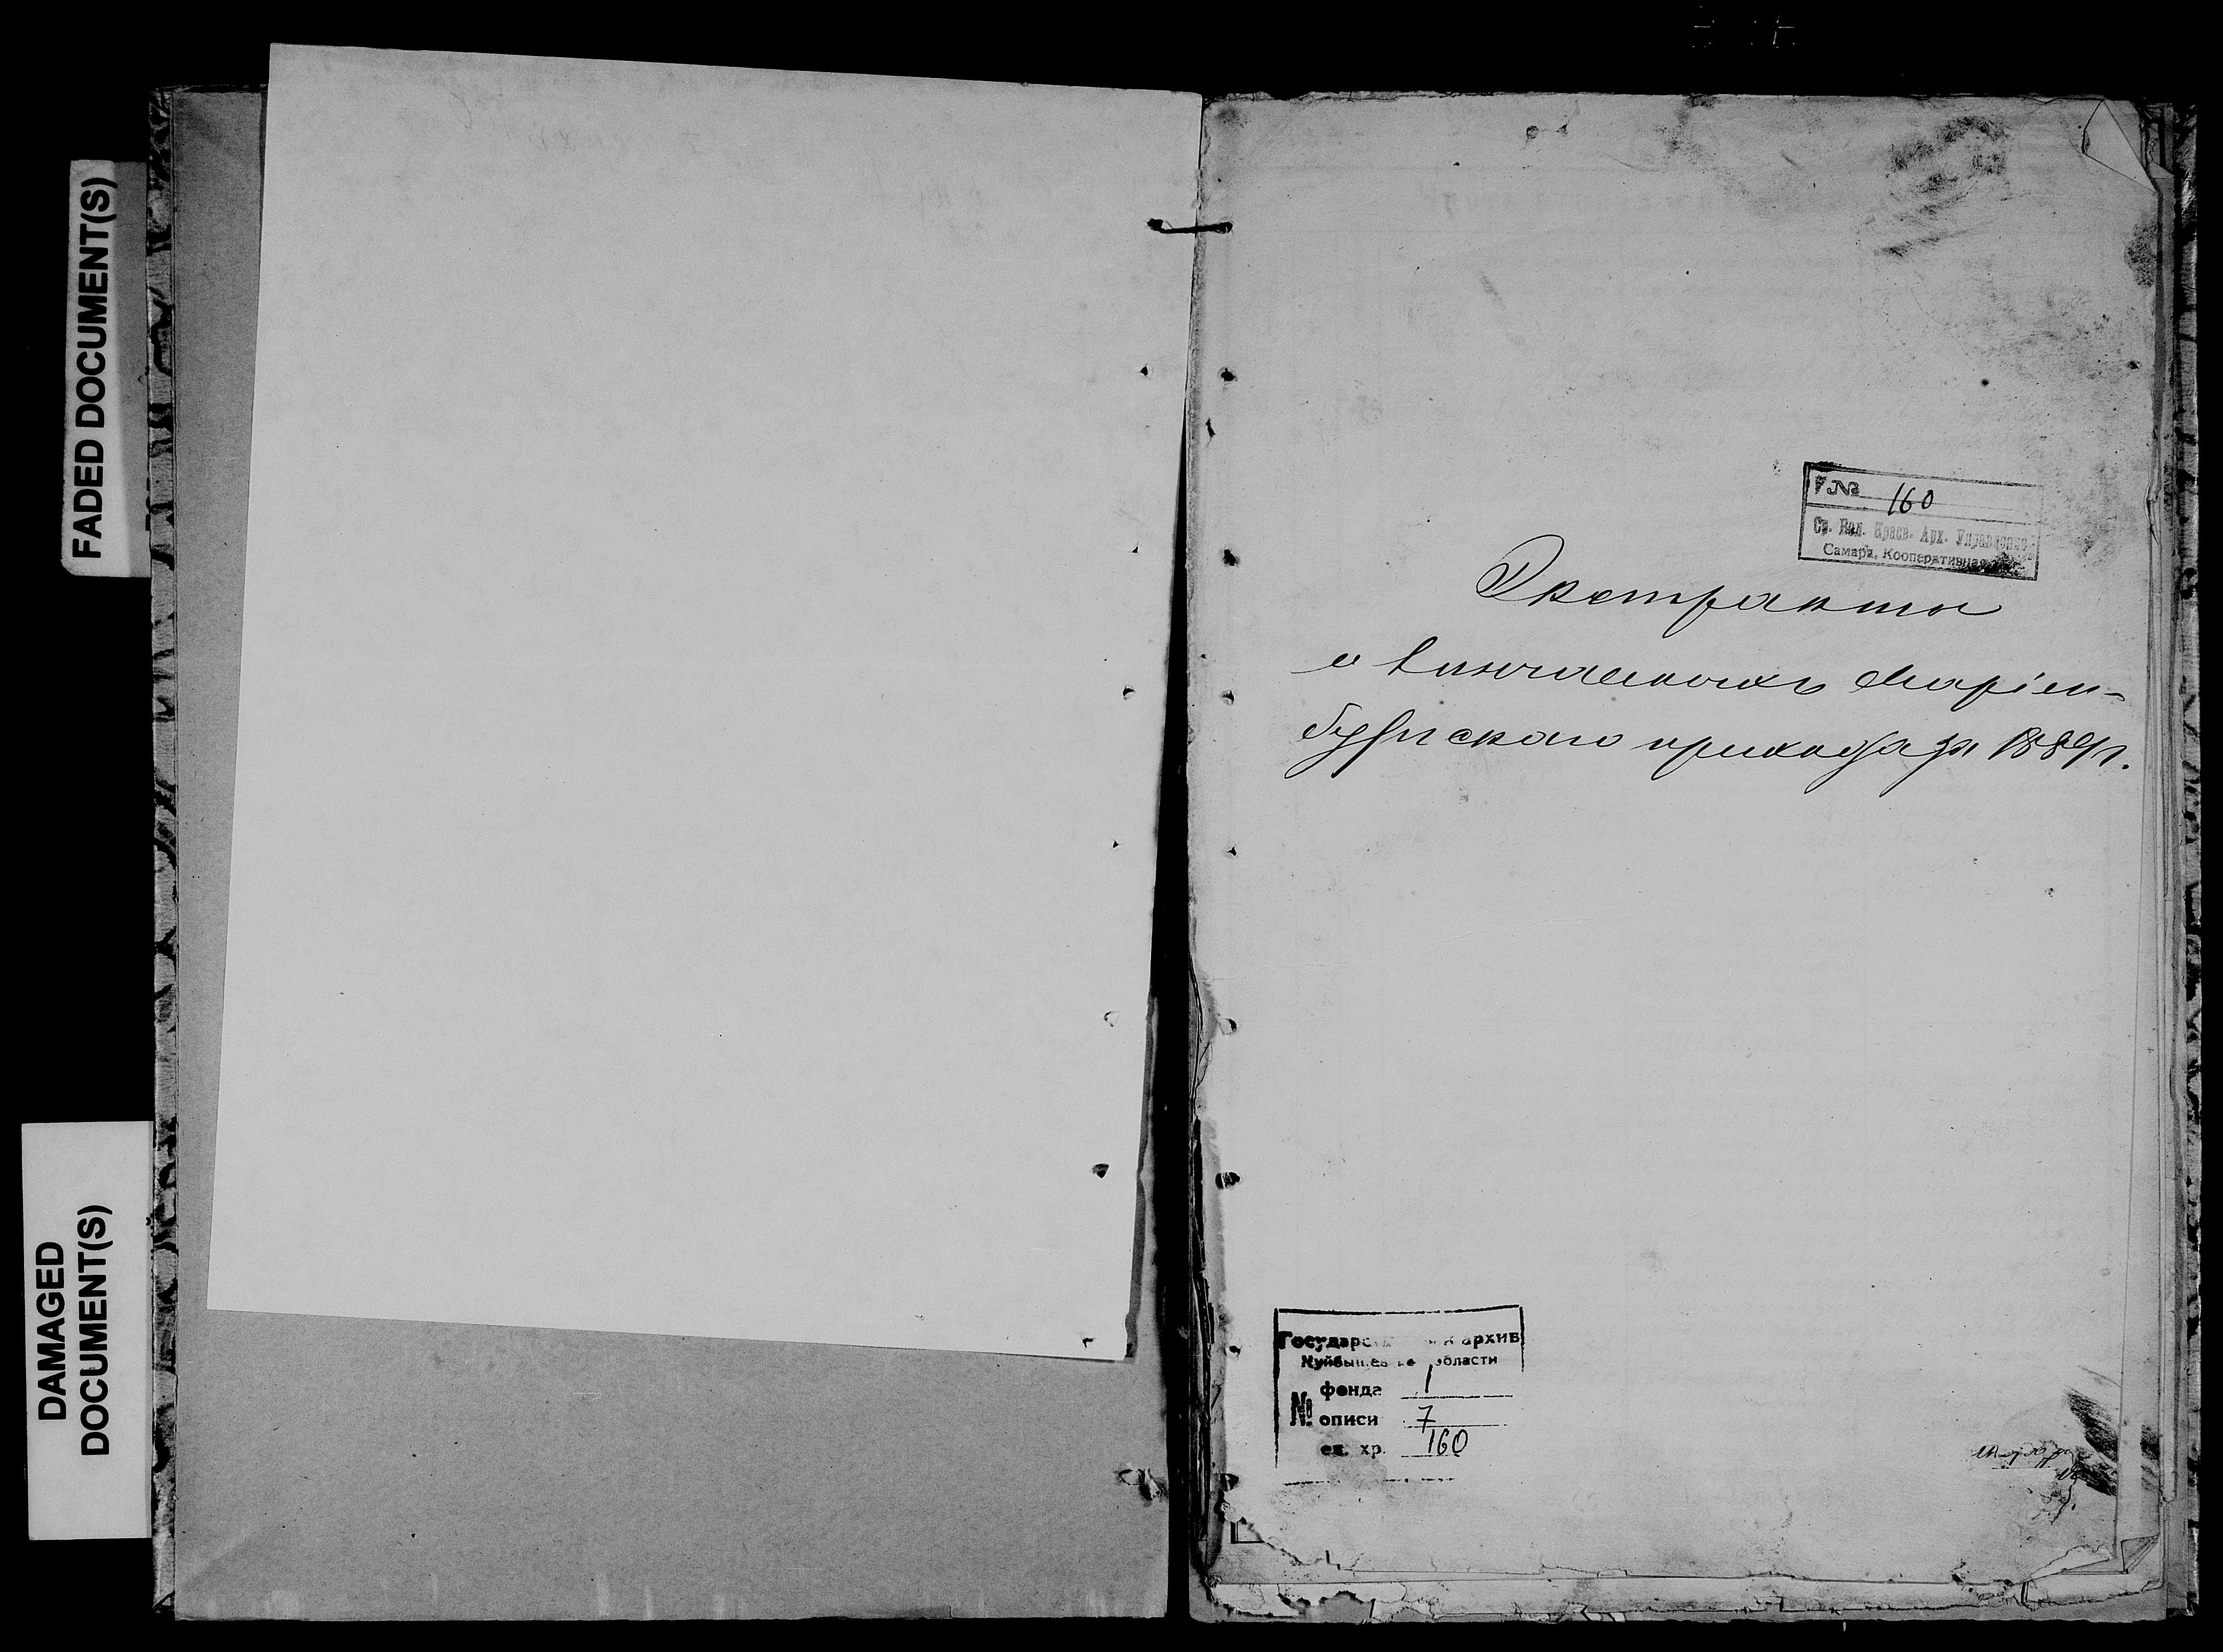 FADED DOCUMENT(S)
DAMAGED
DOCUMENT(S)
F.№ 160
Ср. Вол. Краев. Арх. Управление
Самара, Кооперативная
Экстракты
о вѣнчанныхъ Маріен-
бургскаго прихода за 188 г.
Государс архив
Куйбышев области
№
фонда 1
описи 7
ед. хр. 160